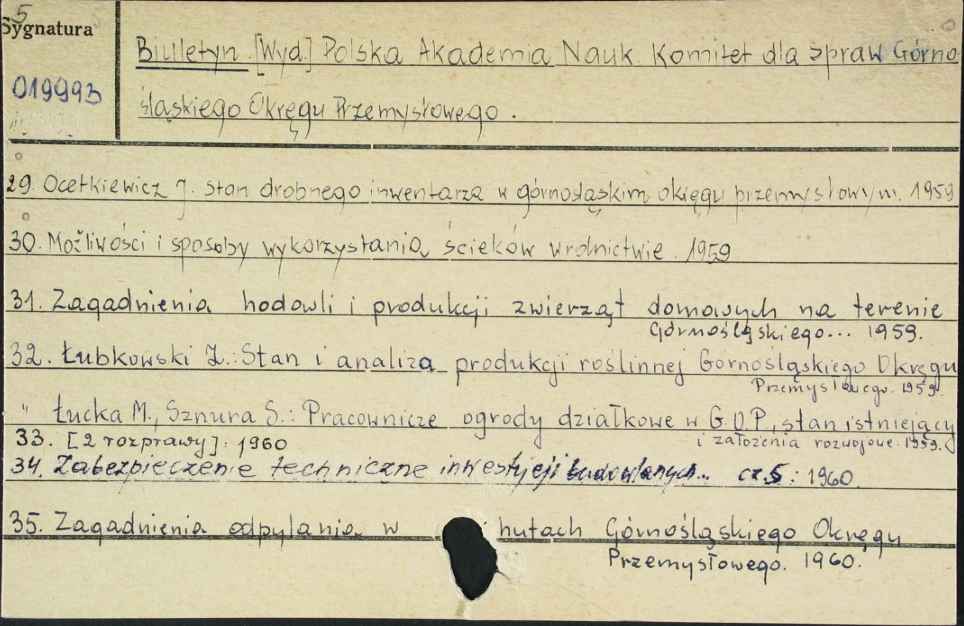 5
Sygnatura
019993
Biuletyn. [Wyd.] Polska Akademia Nauk. Komitet dla Spraw Górno-
śląskiego Okręgu Przemysłowego.
29. Ocetkiewicz J. Stan drobnego inwentarza w górnośląskim okręgu przemysłowym. 1959
30. Możliwości i sposoby wykorzystania ścieków w rolnictwie. 1959
31. Zagadnienia hodowli i produkcji zwierząt domowych na terenie
Górnośląskiego... 1959.
32. Łubkowski Z.: Stan i analiza produkcji roślinnej Górnośląskiego Okręgu
Przemysłowego. 1959.
" Łucka M., Sznura S.: Pracownicze ogrody działkowe w G.O.P., stan istniejący
i założenia rozwojowe. 1959.
33. [2 rozprawy]. 1960
34. Zabezpieczenie techniczne inwestycji budowlanych... cz. 5: 1960.
35. Zagadnienia odpylania w hutach Górnośląskiego Okręgu
Przemysłowego. 1960.